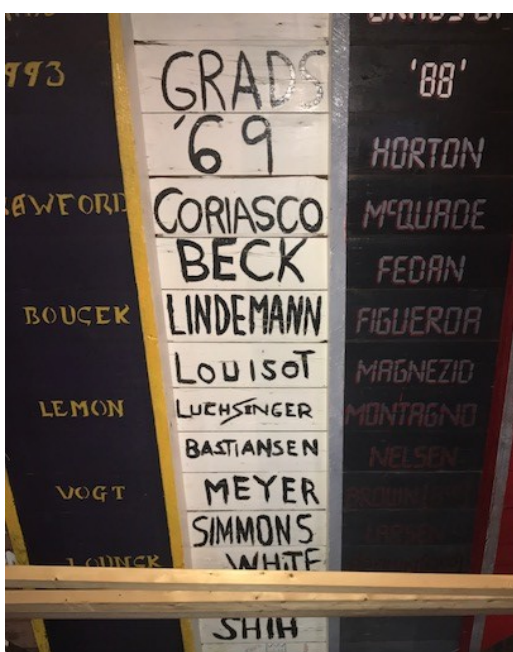 1993
BOUCEK
LEMON
VOGT
GRADS
'69
CORIASCO
BECK
LINDEMANN
LOUISOT
LUCHSINGER
BASTIANSEN
MEYER
SIMMONS
WHITE
SHIH
'88'
HORTON
McQUADE
FEDAN
FIGUEROA
MAGNEZIO
MONTAGNO
NELSEN